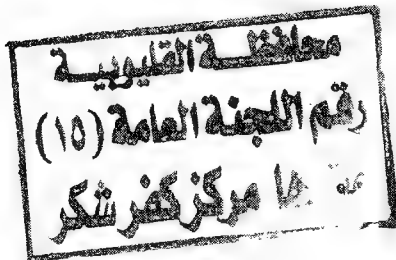 محافظة القليوبية
رقم اللجنة العامة (١٥)
مركز كفر شكر